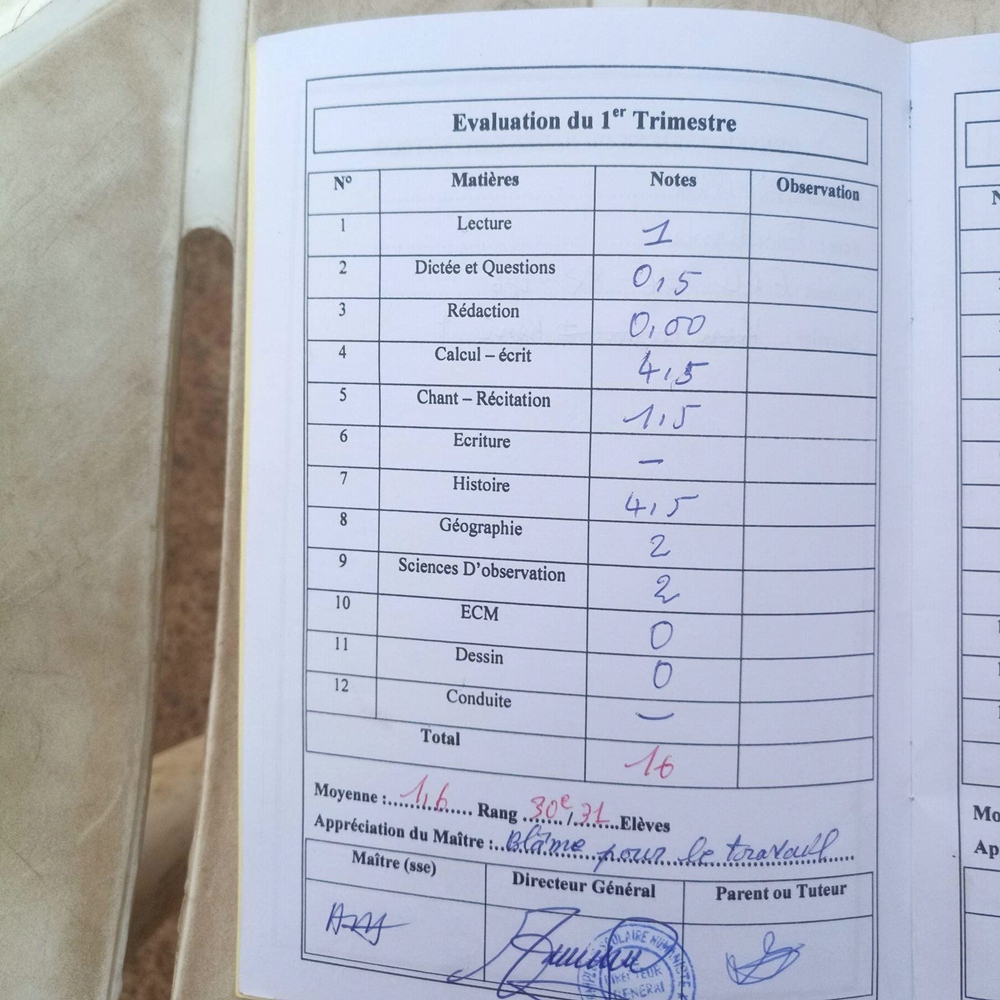 Evaluation du 1er Trimestre
N° Matières Notes Observation
1 Lecture 1
2 Dictée et Questions 0,5
3 Rédaction 0,00
4 Calcul – écrit 4,5
5 Chant – Récitation 1,5
6 Ecriture —
7 Histoire 4,5
8 Géographie 2
9 Sciences D'observation 2
10 ECM 0
11 Dessin 0
12 Conduite —
Total 16
Moyenne : 1,6 Rang 30e / 31 Elèves
Appréciation du Maître : Blâme pour le travail
Maître (sse) Directeur Général Parent ou Tuteur
DIRECTEUR
GENERAL
N
Mo
Ap